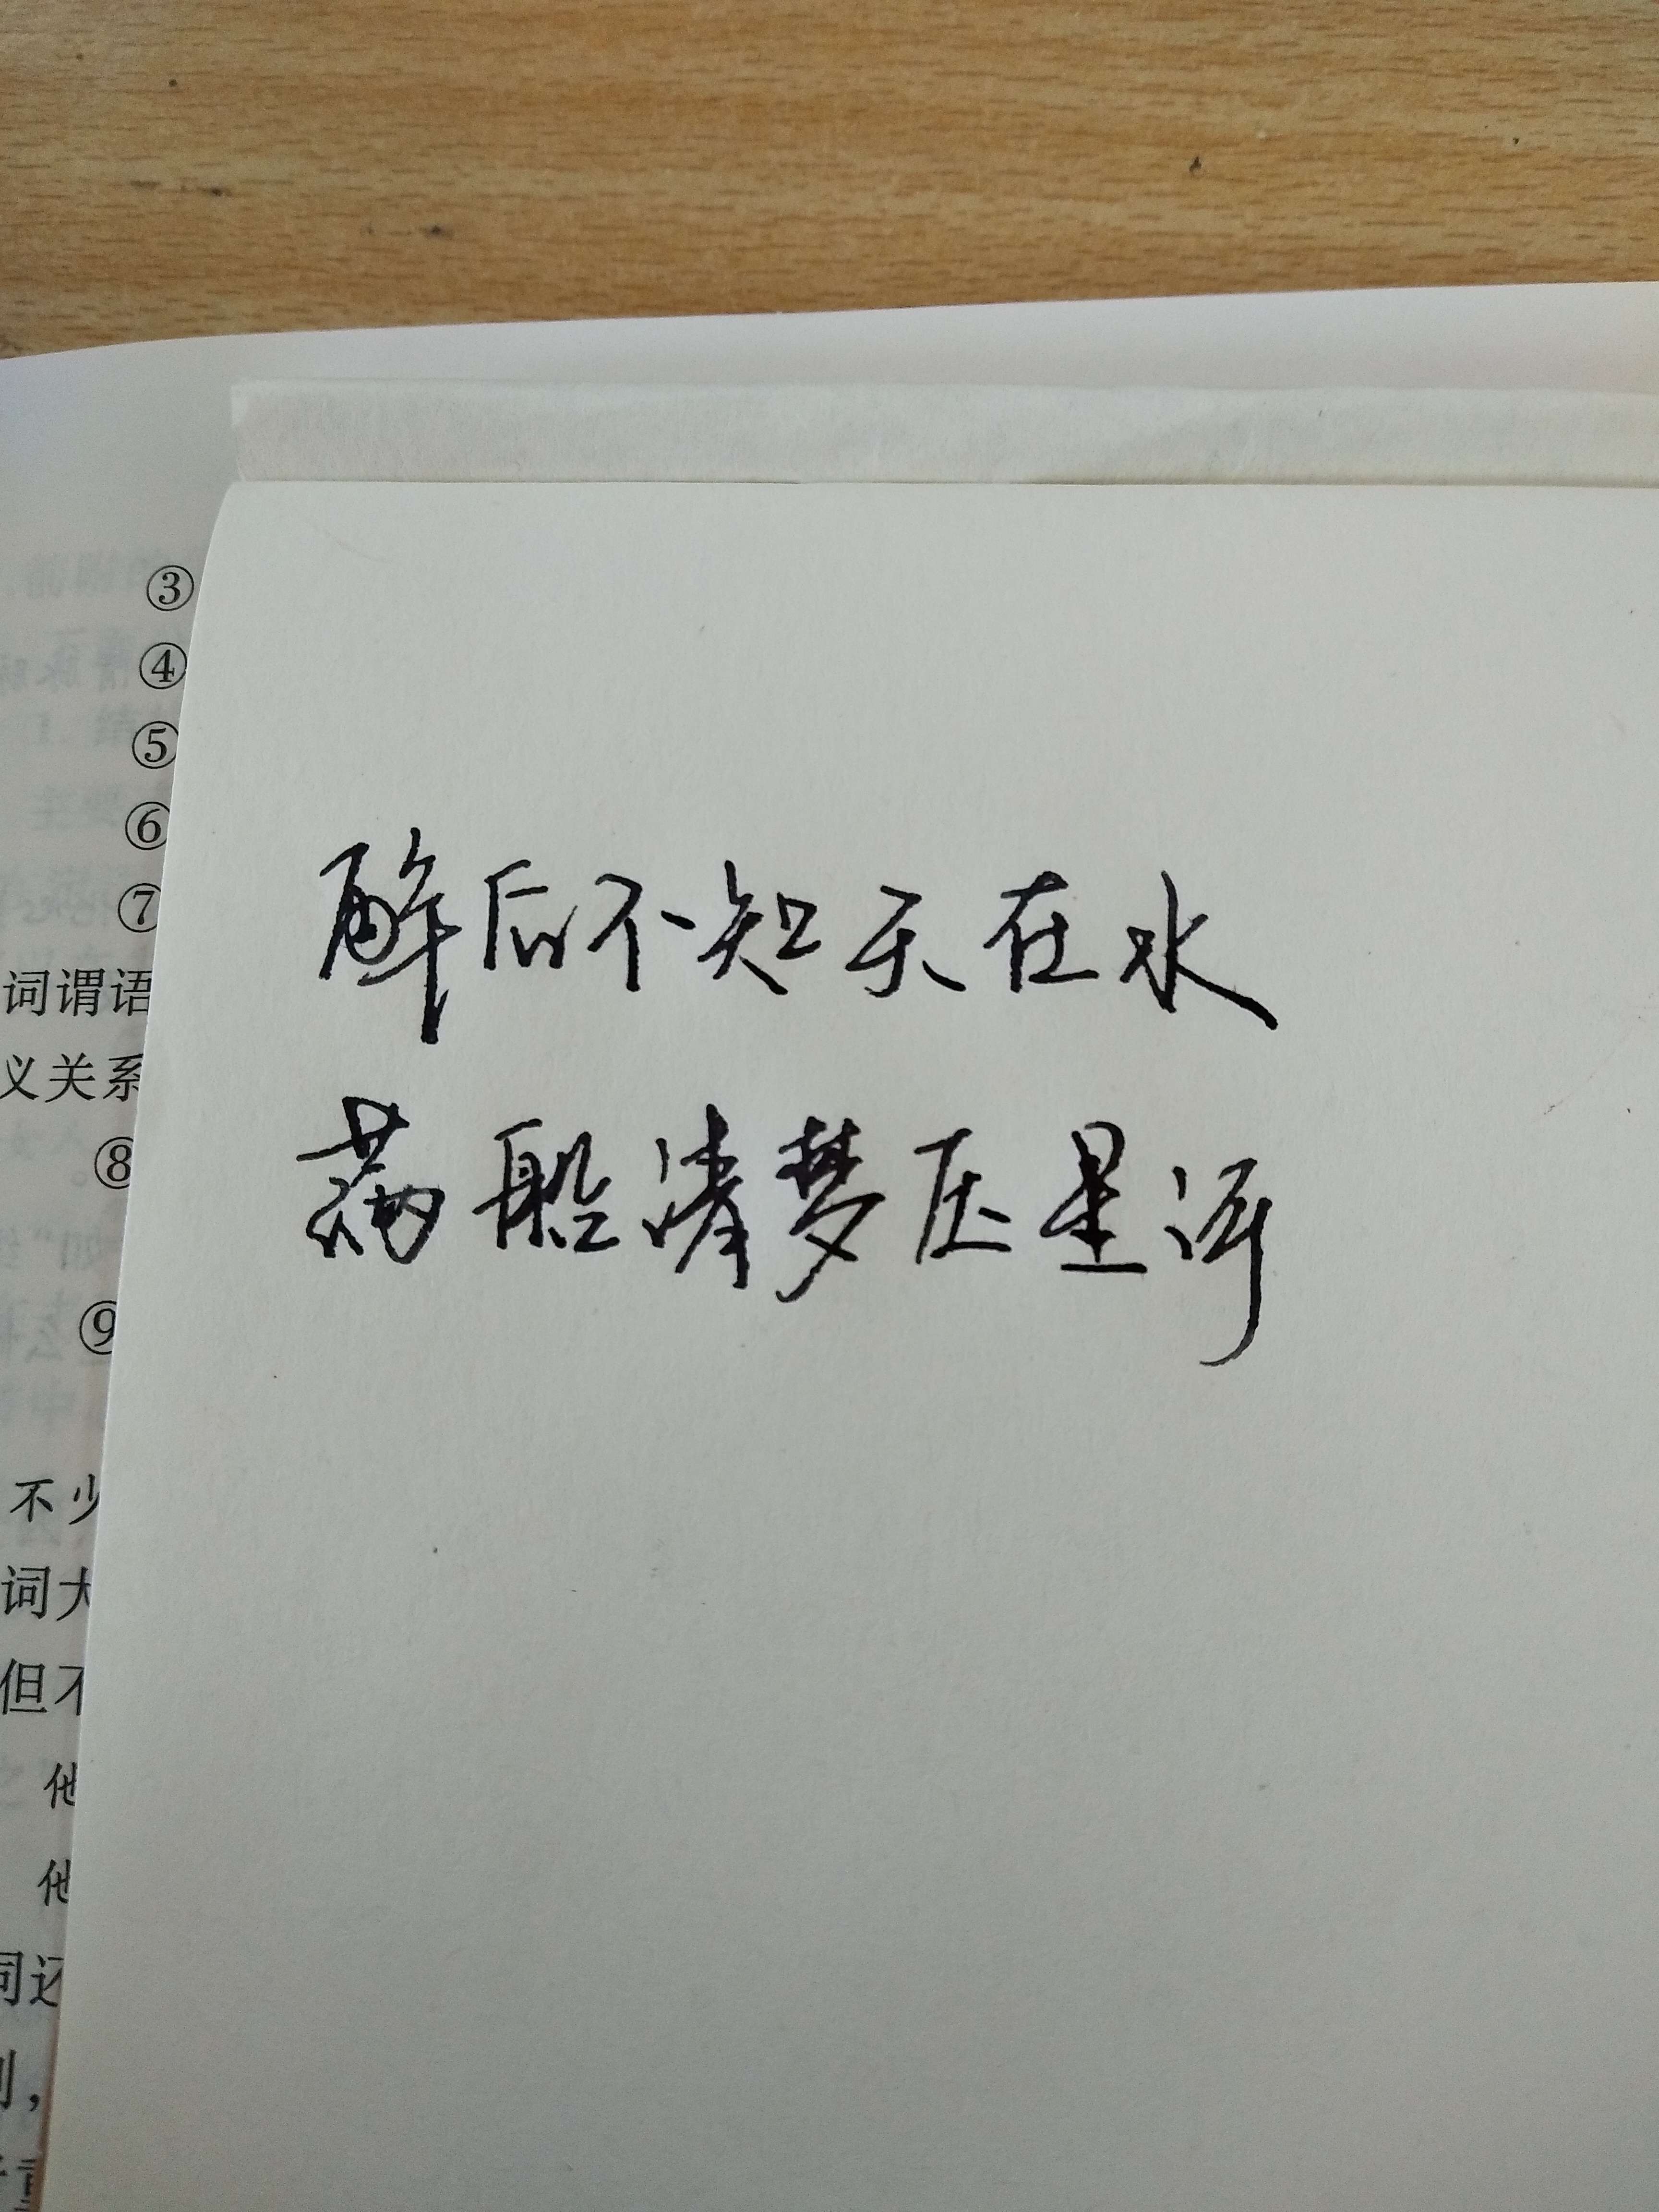 醉后不知天在水
满船清梦压星河
③
④
⑤
⑥
⑦
词谓语
义关系
⑧
⑨
不少
词大
但不
他
他
词还